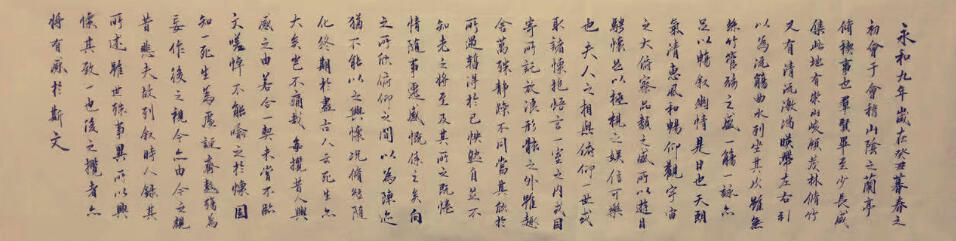 永和九年歲在癸丑暮春之
初會于會稽山陰之蘭亭
脩稧事也群賢畢至少長咸
集此地有崇山峻嶺茂林脩竹
又有清流激湍映帶左右引
以為流觴曲水列坐其次雖無
絲竹管絃之盛一觴一詠亦
足以暢敘幽情是日也天朗
氣清惠風和暢仰觀宇宙
之大俯察品類之盛所以遊目
騁懷足以極視之娛信可樂
也夫人之相與俯仰一世或
取諸懷抱悟言一室之內或因
寄所託放浪形骸之外雖趣
舍萬殊靜躁不同當其欣於
所遇輒得於己怏然自足不
知老之將至及其所之既惓
情隨事遷感慨係之矣向
之所欣俯仰之間以為陳迹
猶不能以之興懷況脩短隨
化終期於盡古人云死生亦
大矣豈不痛哉每攬昔人興
感之由若合一契未嘗不臨
文嗟悼不能喻之於懷固
知一死生為虛誕齊彭殤為
妄作後之視今亦由今之視
昔悲夫故列敘時人錄其
所述雖世殊事異所以興
懷其致一也後之攬者亦
將有感於斯文